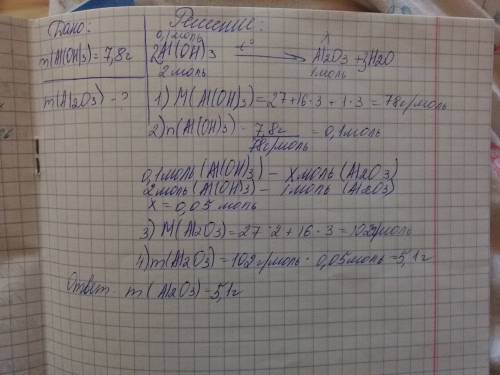 Дано:
Решение:
m(Al(OH)3) = 7,8г
m(Al2O3) - ?
0,1моль x
2Al(OH)3 t° → Al2O3 + 3H2O
2 моль 1моль
1) M(Al(OH)3) = 27+16·3+1·3 = 78г/моль
2) n(Al(OH)3) - 7,8г / 78г/моль = 0,1моль
0,1моль (Al(OH)3) - Xмоль (Al2O3)
2моль (Al(OH)3) - 1моль (Al2O3)
X = 0,05 моль
3) M(Al2O3) = 27·2+16·3 = 102г/моль
4) m(Al2O3) = 102г/моль · 0,05моль = 5,1г
Ответ: m(Al2O3) = 5,1г